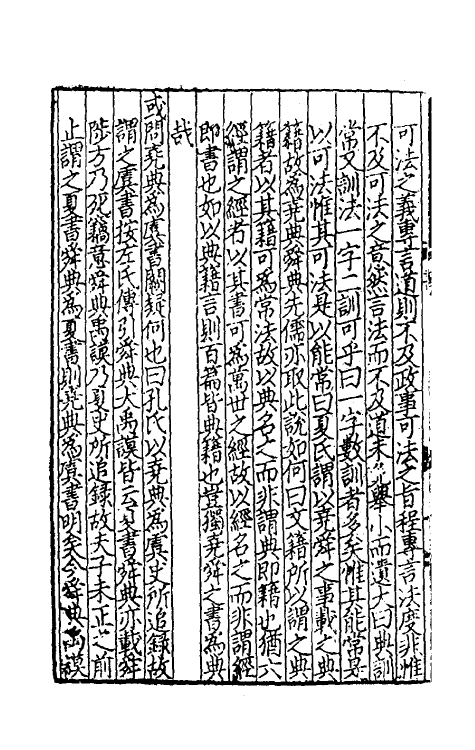 可法之義專言道則不及政事可法之旨程專言法度非惟
不及可法之意然言法而不及道未必舉小而遺大曰典訓
常又訓法一字二訓可乎曰一字數訓者多矣惟其能常是
以可法惟其可法是以能常曰夏氏謂以堯舜之事載之典
籍故為堯典舜典先儒亦取此說如何曰文籍所以謂之典
籍者以其籍可為常法故以典名之而非謂典即籍也猶六
經謂之經者以其書可為萬世之經故以經名之而非謂經
即書也如以典籍言則百篇皆典籍也豈獨堯舜之書為典
哉
或問堯典為虞書闕疑何也曰孔氏以堯典為虞史所追錄故
謂之虞書按左氏傳引舜典大禹謨皆云夏書舜典亦載舜
陟方乃死竊意舜典禹謨乃夏史所追錄故夫子未正之前
止謂之夏書舜典為夏書則堯典為虞書明矣今舜典禹謨